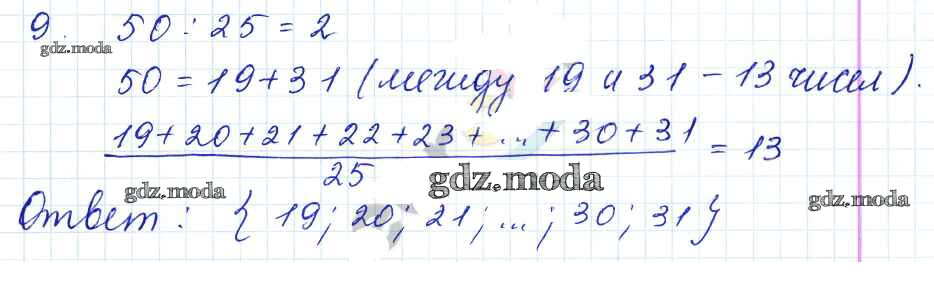 9. 50 : 25 = 2
gdz.moda
50 = 19 + 31 (между 19 и 31 - 13 чисел).
19 + 20 + 21 + 22 + 23 + ... + 30 + 31 / 25 = 13
gdz.moda
gdz.moda
gdz.moda
Ответ: { 19; 20; 21; ...; 30; 31 }